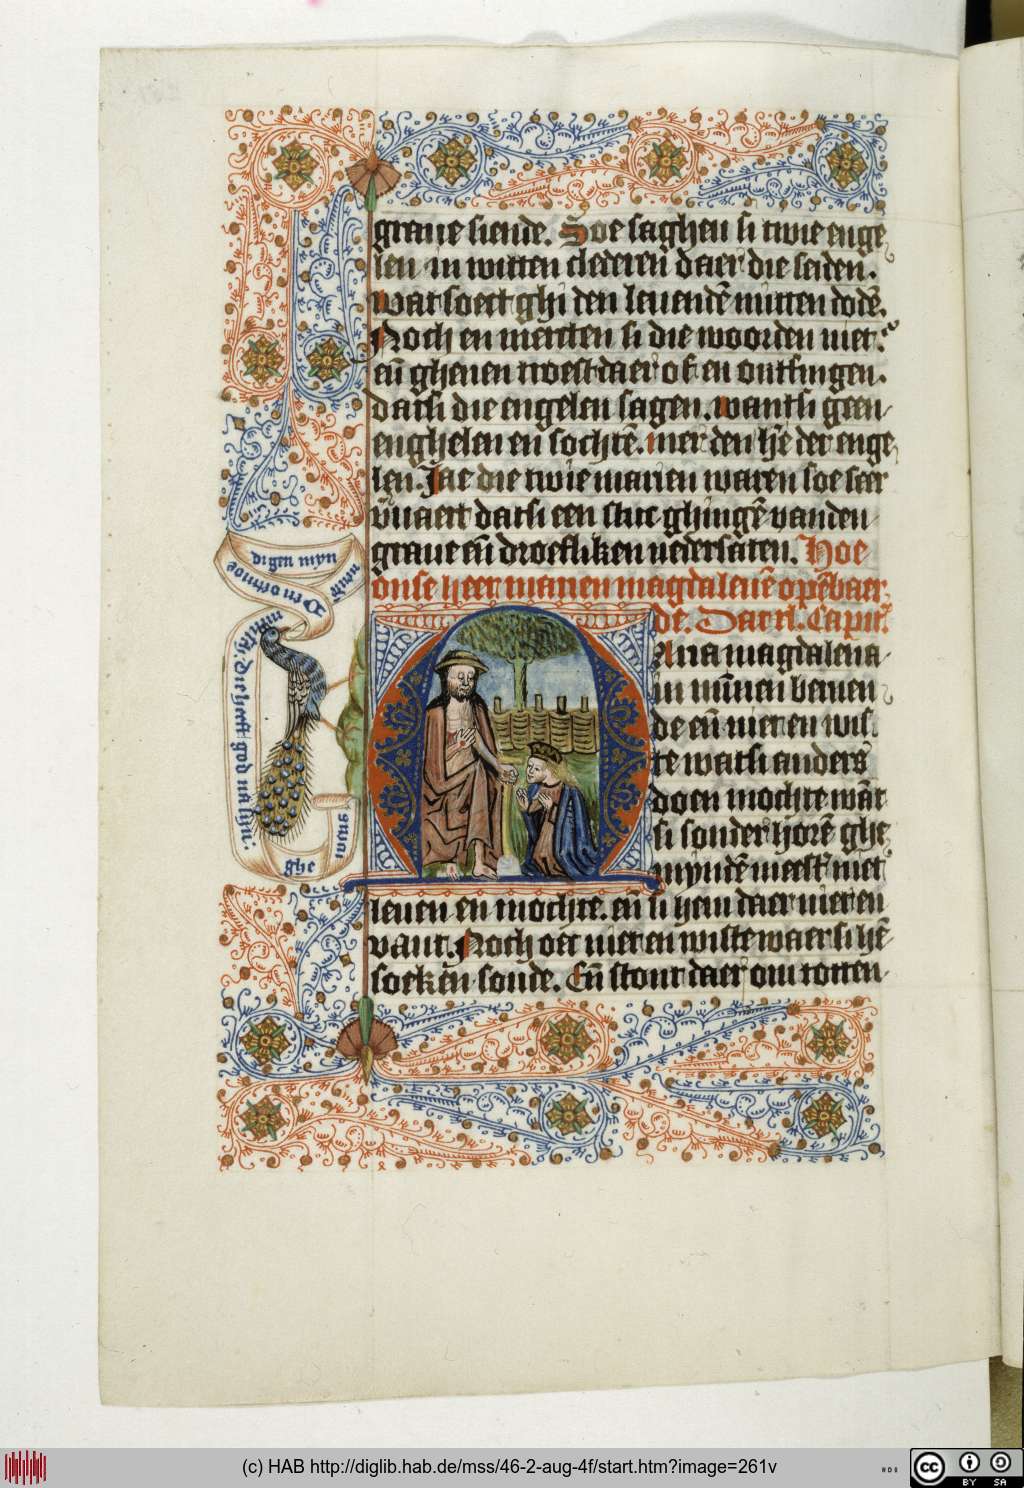 graue siende. Soe saghen si twie enge
len in witten clederen daer die seiden.
wat soect ghi den leuendē mitten dodē.
Noch en mercten si die woorden niet.
eñ ghenen troest daer of en ontfingen.
dat si die engelen sagen. want si geen
enghelen en sochtē. mer den hē der enge
len. Jae die twie marien waren soe seer
v'uaert dat si een stuc ghingē vanden
graue eñ droefliken neder saten. Hoe
onse heer marien magdalenē opēbaer
de. Dat xl. Capit'.
Aria magdalena
in mīnen bernen
de eñ niet en wis
te wat si anders
doen mochte wāt
si sonder hoerē ghe
myndē meest' niet
leuen en mochte. eñ si hem daer niet en
vant. Noch oec niet en wiste waer si hē
soekēn soude. Eñ stont daer om totten
digen myn
Den otmoe
nentē
mintic. Die heeft god na sijn.
ghe
(c) HAB http://diglib.hab.de/mss/46-2-aug-4f/start.htm?image=261v
cc BY SA